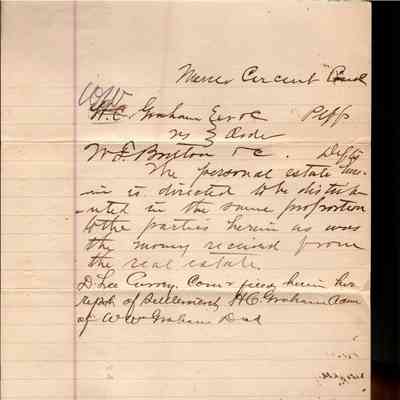 Mercer Circuit Court
WW
H.C. Graham Exor &c Plffs
vs } Order
W.F. Britton &c. Defts
The personal estate here-
in is directed to be distrib-
uted in the same proportion
to the parties herein as was
the money received from
the real estate.
D. Lee Curry, Comr filed herein his
report of Settlement, H.C. Graham Adm
of W Wm Graham Decd